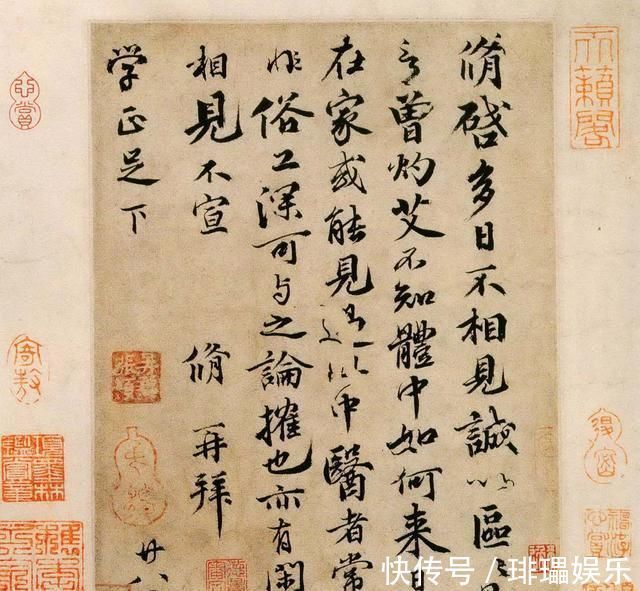 脩啓多日不相見誠以區〻
言曾灼艾不知體中如何来日
在家或能見過此中醫者常
非俗工深可与之論搉也亦有閑
相見不宣 脩再拜
学正足下
廿八
天籟閣
快传号/琲瓃娱乐